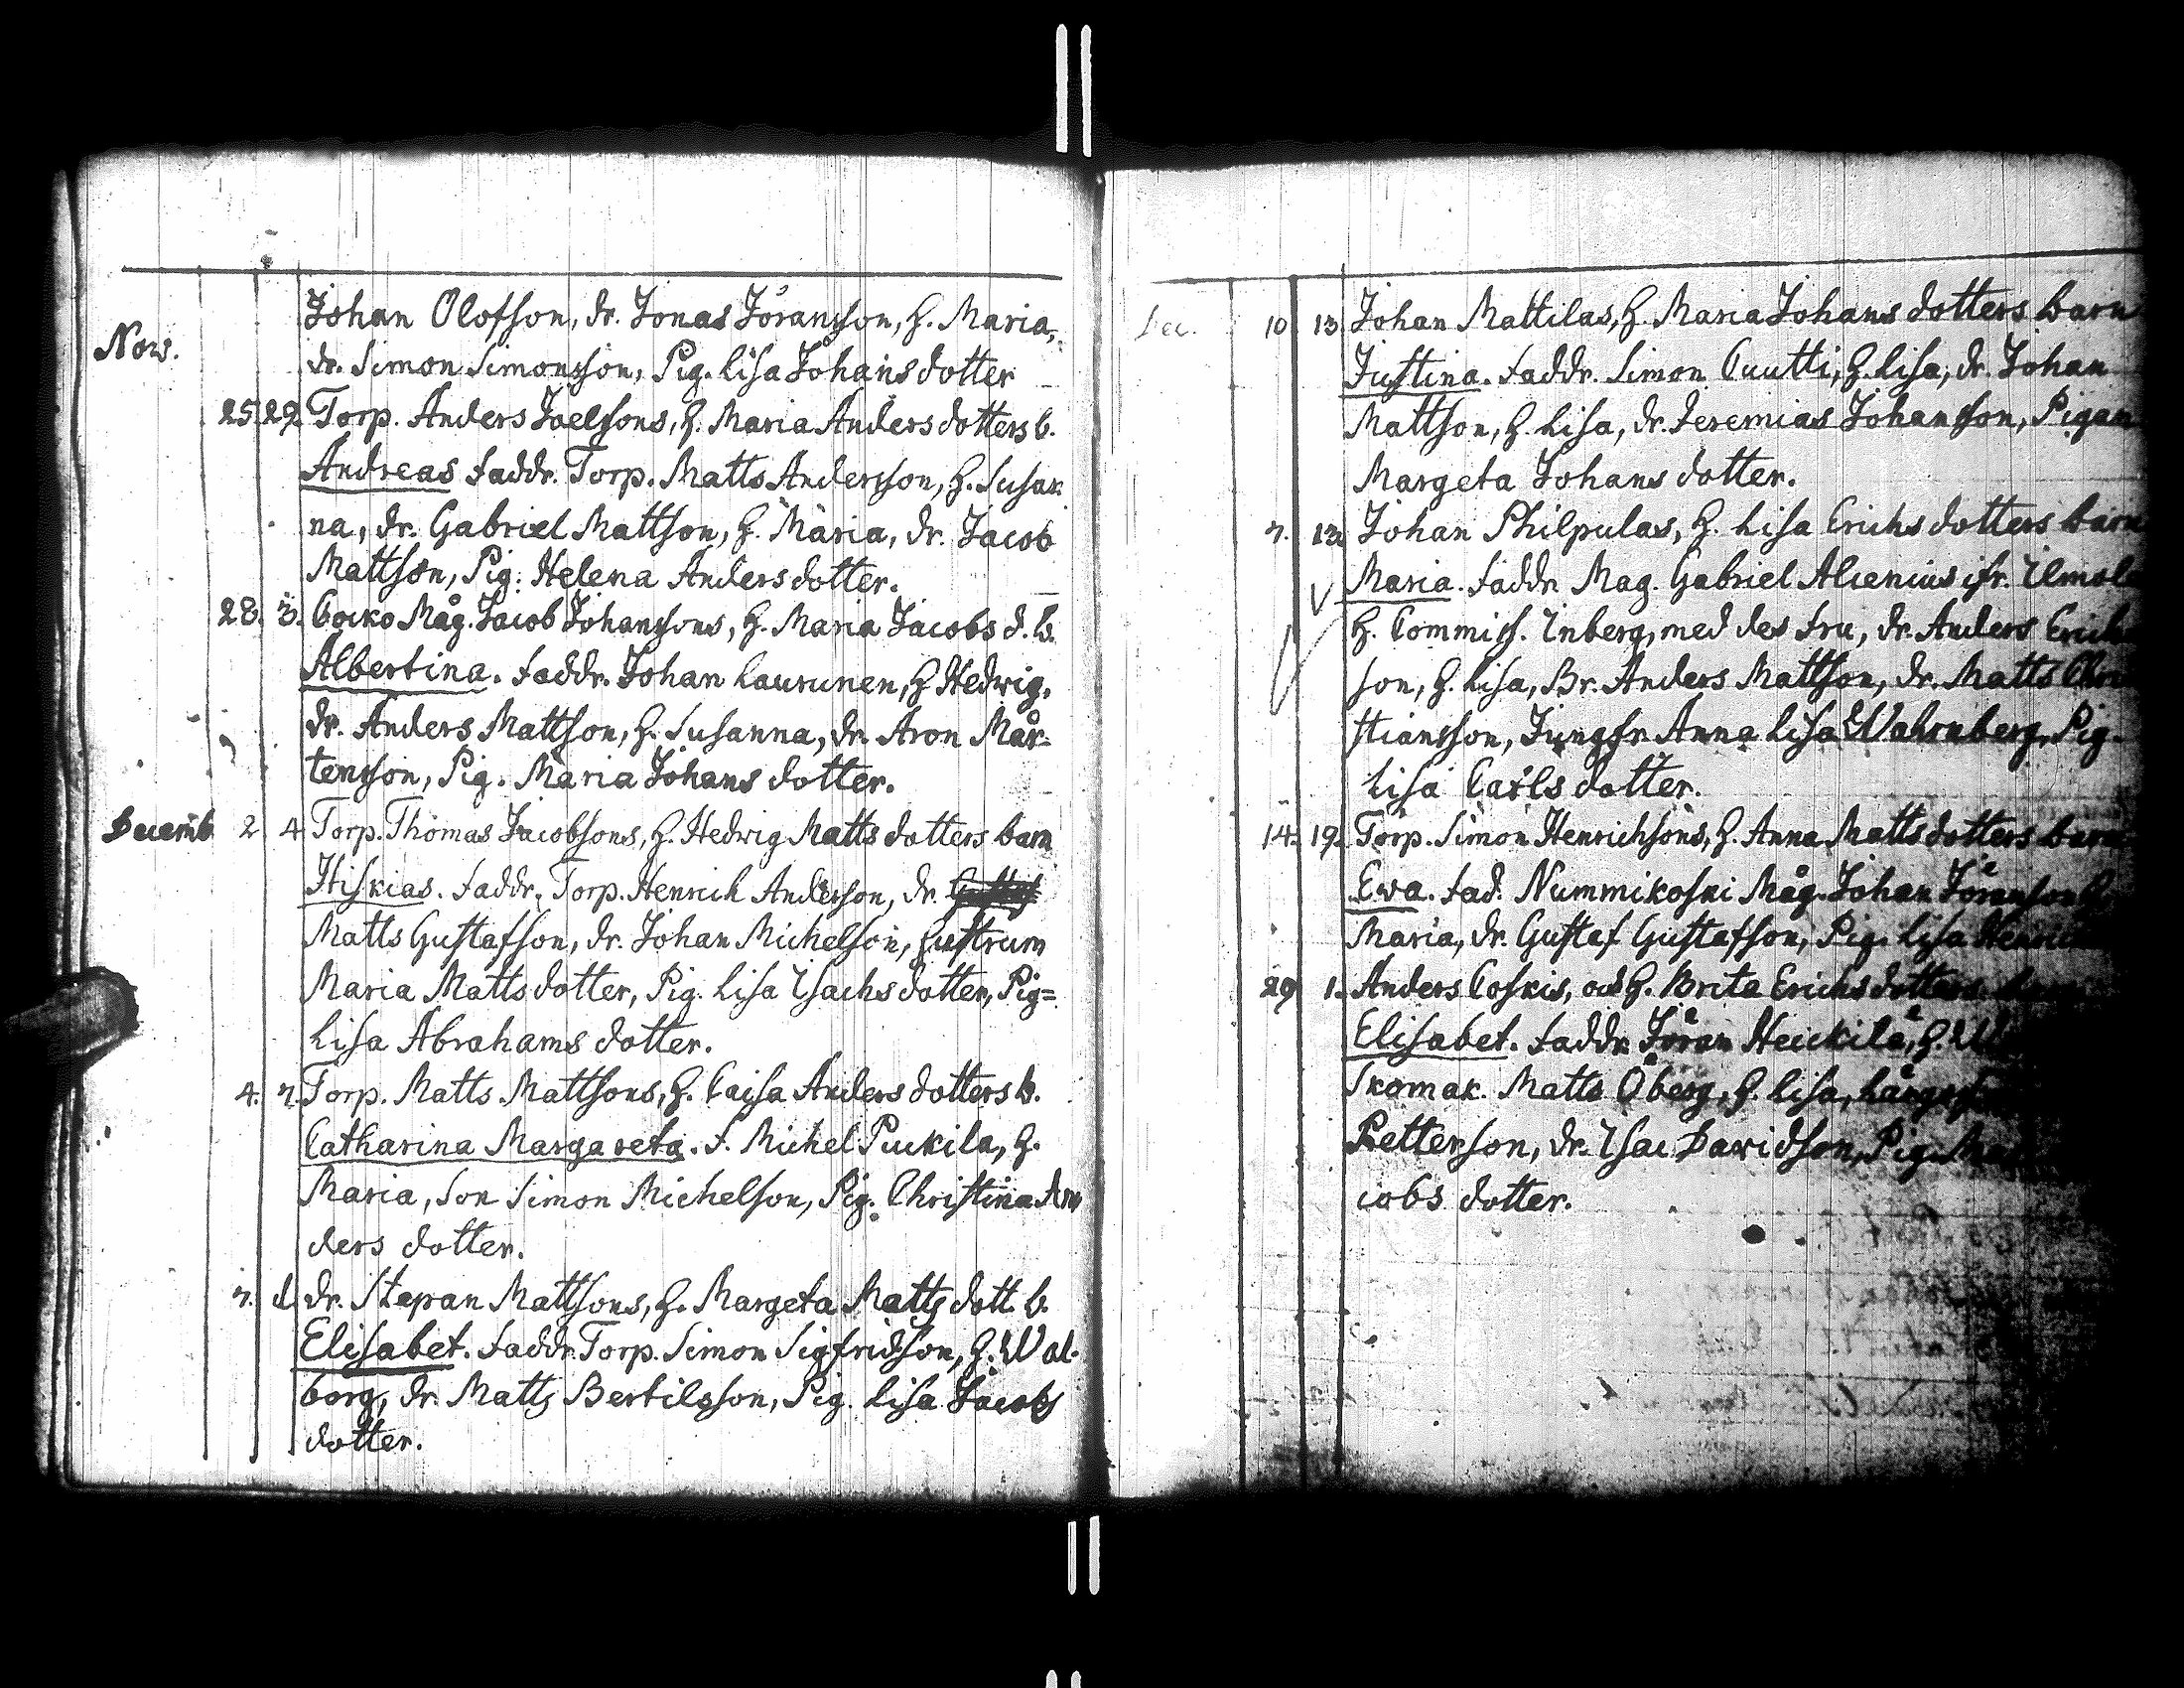 Johan Olofson, dr. Jonas Jöransson, H. Maria,
Nov.
dr. Simon Simonsson, Pig. Lisa Johans dotter
25. 29. Torp. Anders Joelsons, H. Maria Anders dotters b.
Andreas Faddr. Torp. Matts Andersson, H. Susan
na, dr. Gabriel Mattson, H. Maria, dr. Jacob
Mattson, Pig. Helena Anders dotter.
28. 3. Cocko Måg. Jacob Johanssons, H. Maria Jacobs d. b.
Albertina. Faddr. Johan Laurunen, H Hedwig,
dr. Anders Mattson, H. Susanna, dr. Aron Mår=
tensson, Pig. Maria Johans dotter.
Decemb 2 4. Torp. Thomas Jacobsons, H. Hedwig Matts dotters barn
Hiskias. Faddr. Torp. Henrich Andersson, dr.
Matts Gustafson, dr. Johan Michelson, Hustrum
Maria Matts dotter, Pig. Lisa Isachs dotter, Pig=
Lisa Abrahams dotter.
4. 7. Torp. Matts Mattsons, H. Caisa Anders dotters b.
Catharina Margareta. F. Michel Puckila, H.
Maria, Son Simon Michelson, Pig. Christina An
ders dotter.
7. d. dr. Stepan Mattsons, H. Margeta Matts dott. b.
Elisabet. Faddr. Torp. Simon Sigfridson, H. Wal-
borg, dr. Matts Bertilsson, Pig. Lisa Jacobs
dotter.
Dec. 10 13. Johan Mattilas, H. Maria Johans dotters barn
Justina. Faddr. Simon Cuutti, H. Lisa, dr. Johan
Mattson, H. Lisa, dr. Jeremias Johansson, Pigan
Margeta Johans dotter.
7. 13. Johan Philpulas, H. Lisa Erichs dotters barn
Maria. Faddr. Mag. Gabriel Alcenius ifr. Ilmola
H. Commiss. Inberg, med des Fru, dr. Anders Erich
son, H. Lisa, Br. Anders Mattson, dr. Matts Chri
stiansson, Jungfr. Anna Lisa Wahrnberg, Pig.
Lisa Carls dotter.
14. 19. Torp. Simon Henrichsons, H. Anna Matts dotters barn
Ewa. Fad. Nummikoski Måg. Johan Jöransson H.
Maria, dr. Gustaf Gustafsson, Pig. Lisa Henrich
29 1. Anders Coskis, och H. Brita Erichs dotters
Elisabet. Faddr. Jöran Heickilä, H.
Skomak. Matts Öberg, H. Lisa,
Petterson, dr. Isac Davidson, Pig.
cobs dotter.